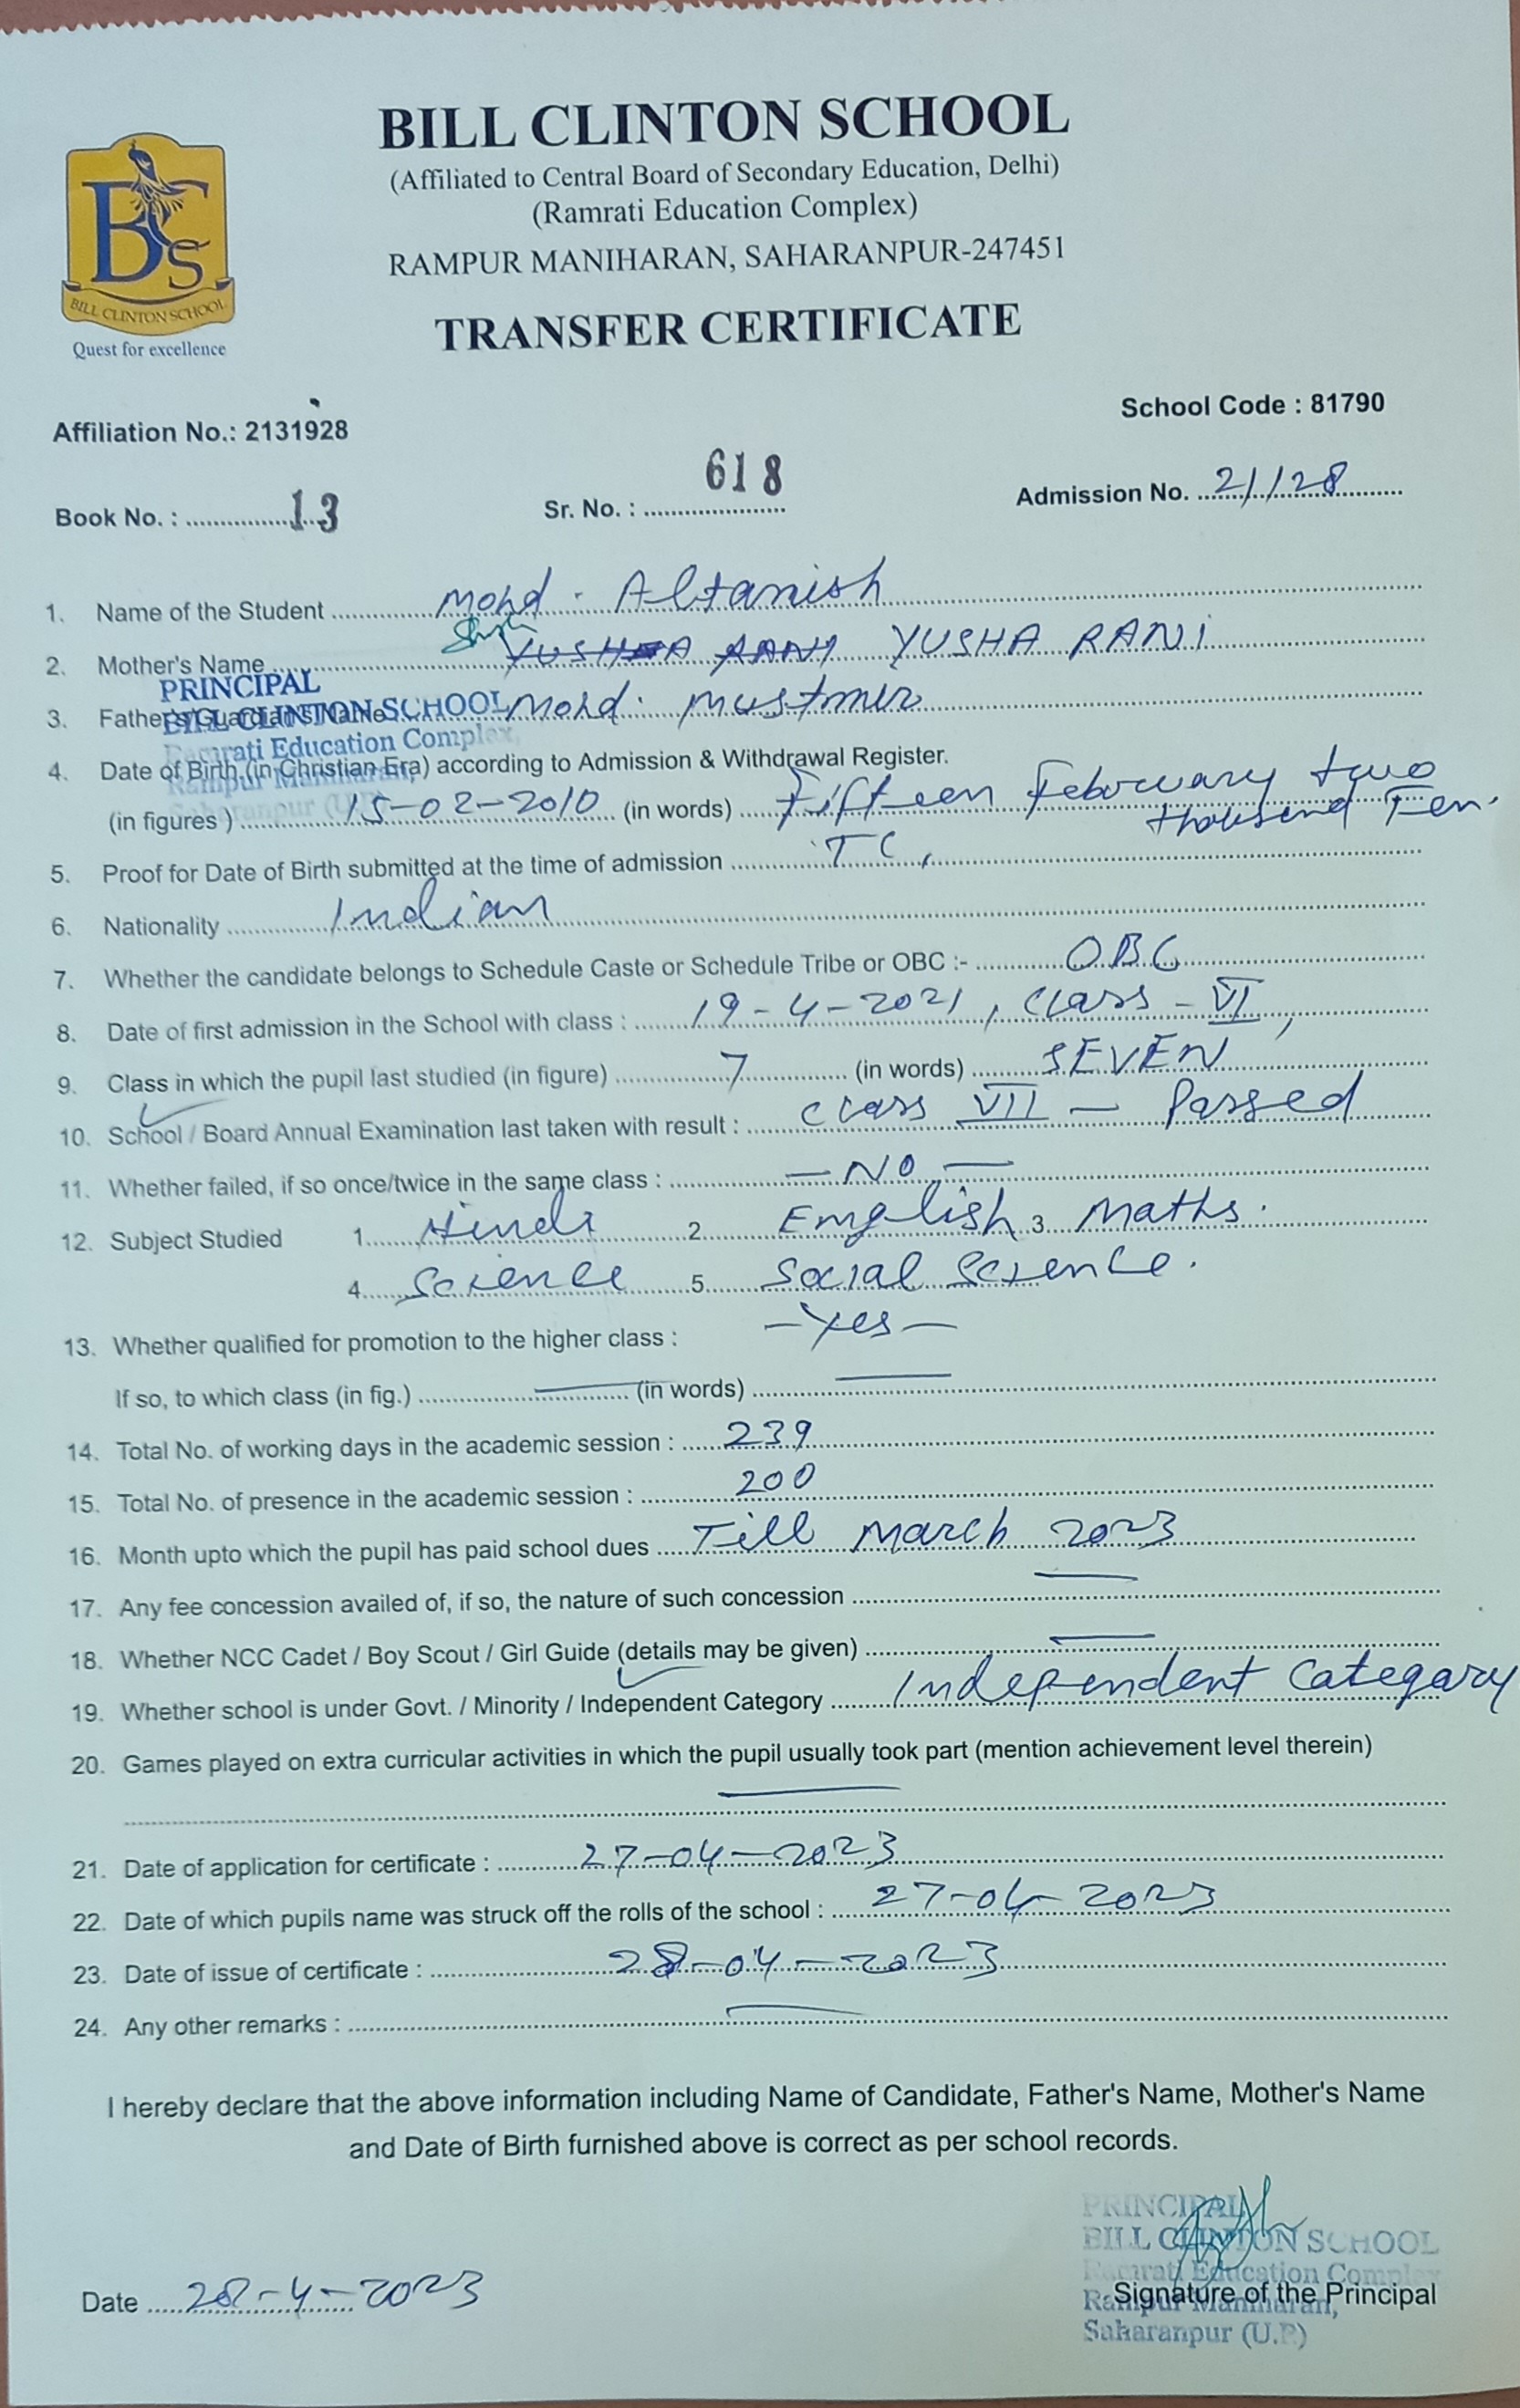 BILL CLINTON SCHOOL
(Affiliated to Central Board of Secondary Education, Delhi)
(Ramrati Education Complex)
RAMPUR MANIHARAN, SAHARANPUR-247451
TRANSFER CERTIFICATE
BCS
BILL CLINTON SCHOOL
Quest for excellence
School Code : 81790
Affiliation No.: 2131928
Book No. : 13 Sr. No. : 618 Admission No. 21/128
1. Name of the Student Mohd. Altanish
2. Mother's Name YUSHA RANI YUSHA RANI
PRINCIPAL
BILL CLINTON SCHOOL
3. Father's/Guardian's Name Mohd. Mustmir
Ramrati Education Complex,
4. Date of Birth (in Christian Era) according to Admission & Withdrawal Register.
Rampur Maniharan,
Saharanpur (U.P.)
(in figures ) 15-02-2010 (in words) Fifteen February two
thousend Ten.
5. Proof for Date of Birth submitted at the time of admission TC,
6. Nationality Indian
7. Whether the candidate belongs to Schedule Caste or Schedule Tribe or OBC :- OBC
8. Date of first admission in the School with class : 19-4-2021, Class - VI,
9. Class in which the pupil last studied (in figure) 7 (in words) SEVEN
10. School / Board Annual Examination last taken with result : Class VII — Passed
11. Whether failed, if so once/twice in the same class : — No —
12. Subject Studied 1. Hindi 2. English 3. Maths.
4. Science 5. Social Science.
13. Whether qualified for promotion to the higher class : — Yes —
If so, to which class (in fig.) — (in words) —
14. Total No. of working days in the academic session : 239
15. Total No. of presence in the academic session : 200
16. Month upto which the pupil has paid school dues Till March 2023
17. Any fee concession availed of, if so, the nature of such concession —
18. Whether NCC Cadet / Boy Scout / Girl Guide (details may be given) —
19. Whether school is under Govt. / Minority / Independent Category Independent Category
20. Games played on extra curricular activities in which the pupil usually took part (mention achievement level therein)
—
21. Date of application for certificate : 27-04-2023
22. Date of which pupils name was struck off the rolls of the school : 27-04-2023
23. Date of issue of certificate : 28-04-2023
24. Any other remarks : —
I hereby declare that the above information including Name of Candidate, Father's Name, Mother's Name
and Date of Birth furnished above is correct as per school records.
PRINCIPAL
BILL CLINTON SCHOOL
Ramrati Education Complex
Rampur Maniharan,
Date 28-4-2023 Signature of the Principal
Saharanpur (U.P.)